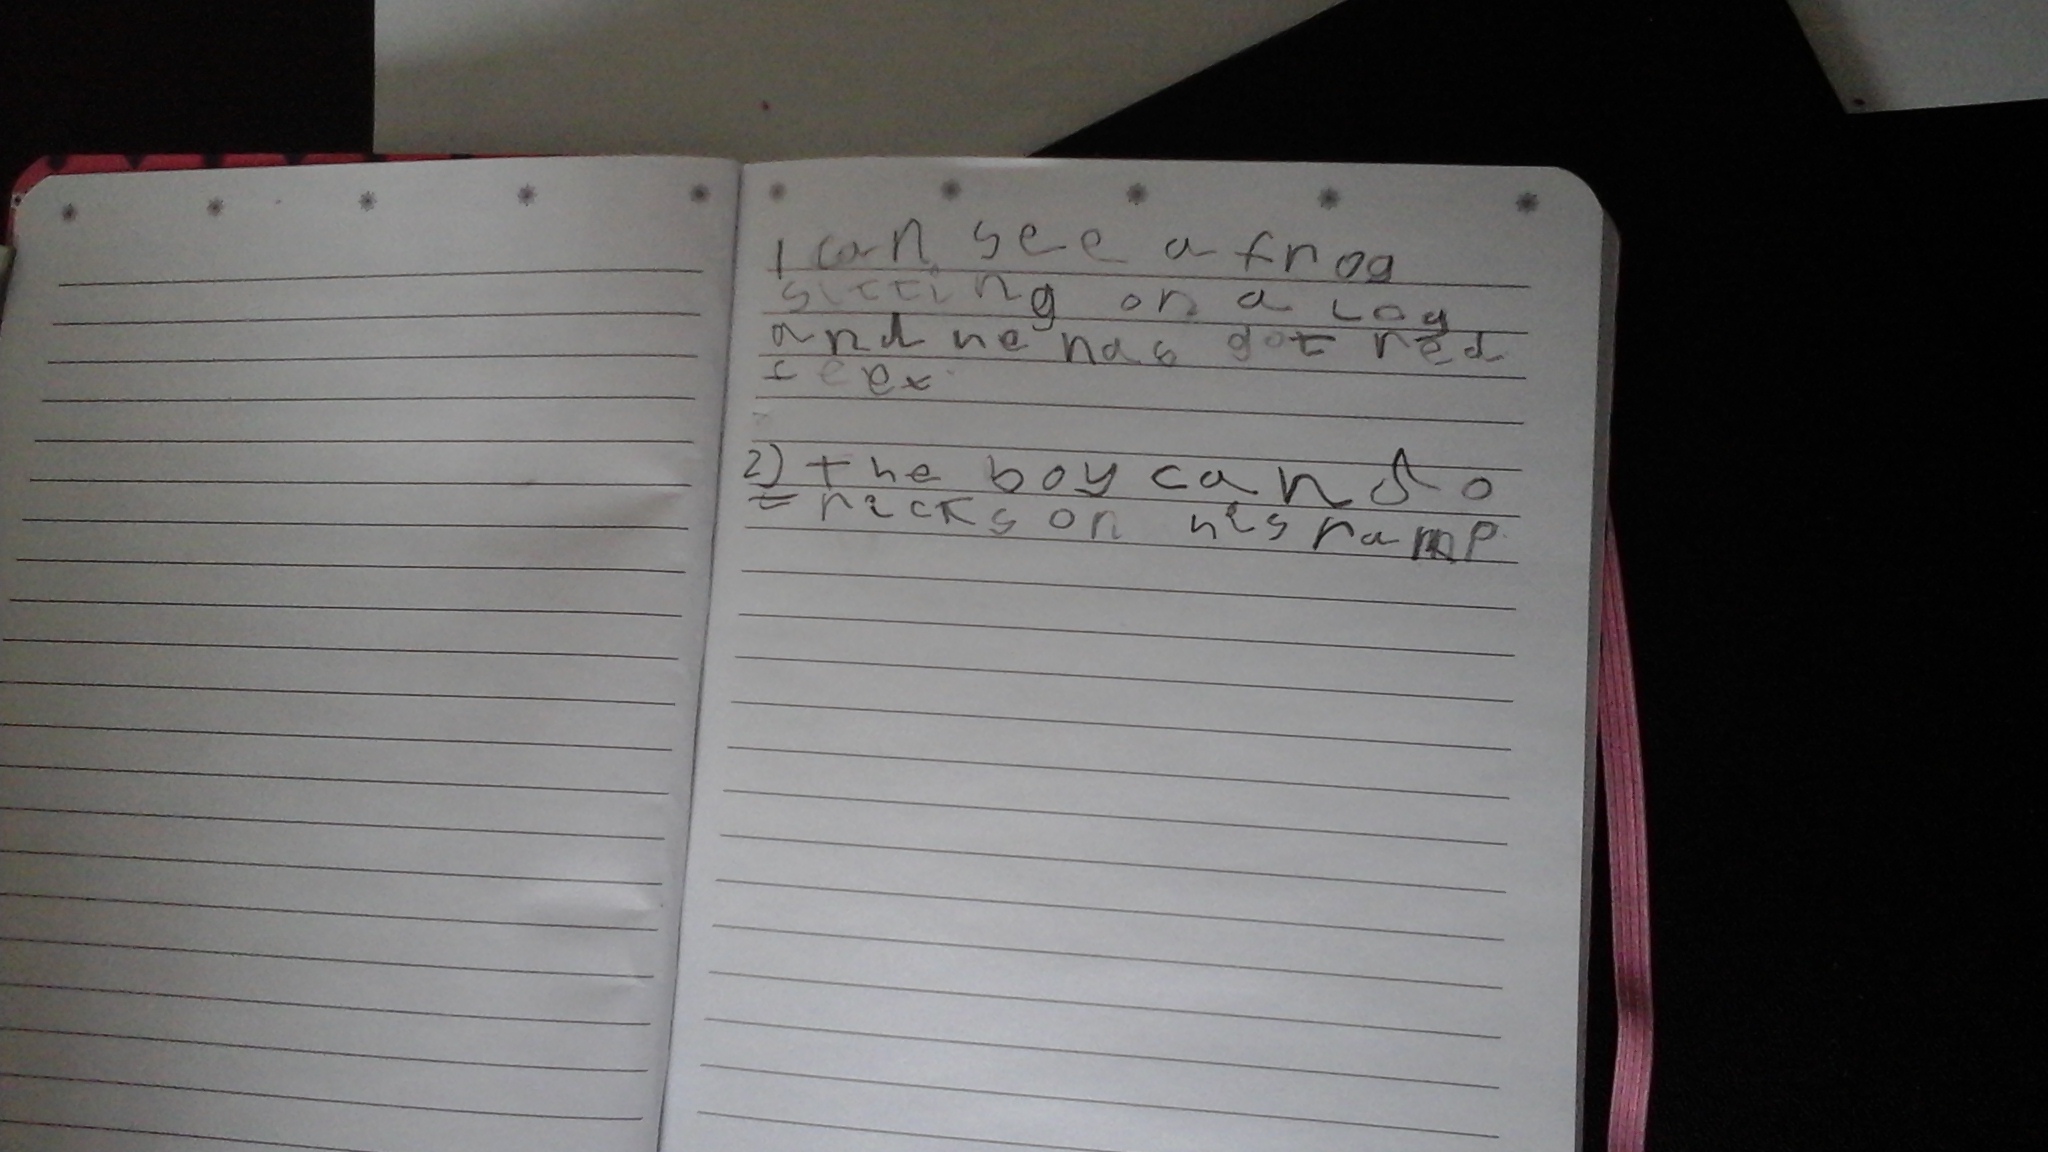 I can see a frog
sitting on a log
and he has got red
feet
2) the boy can do
tricks on his ramp.